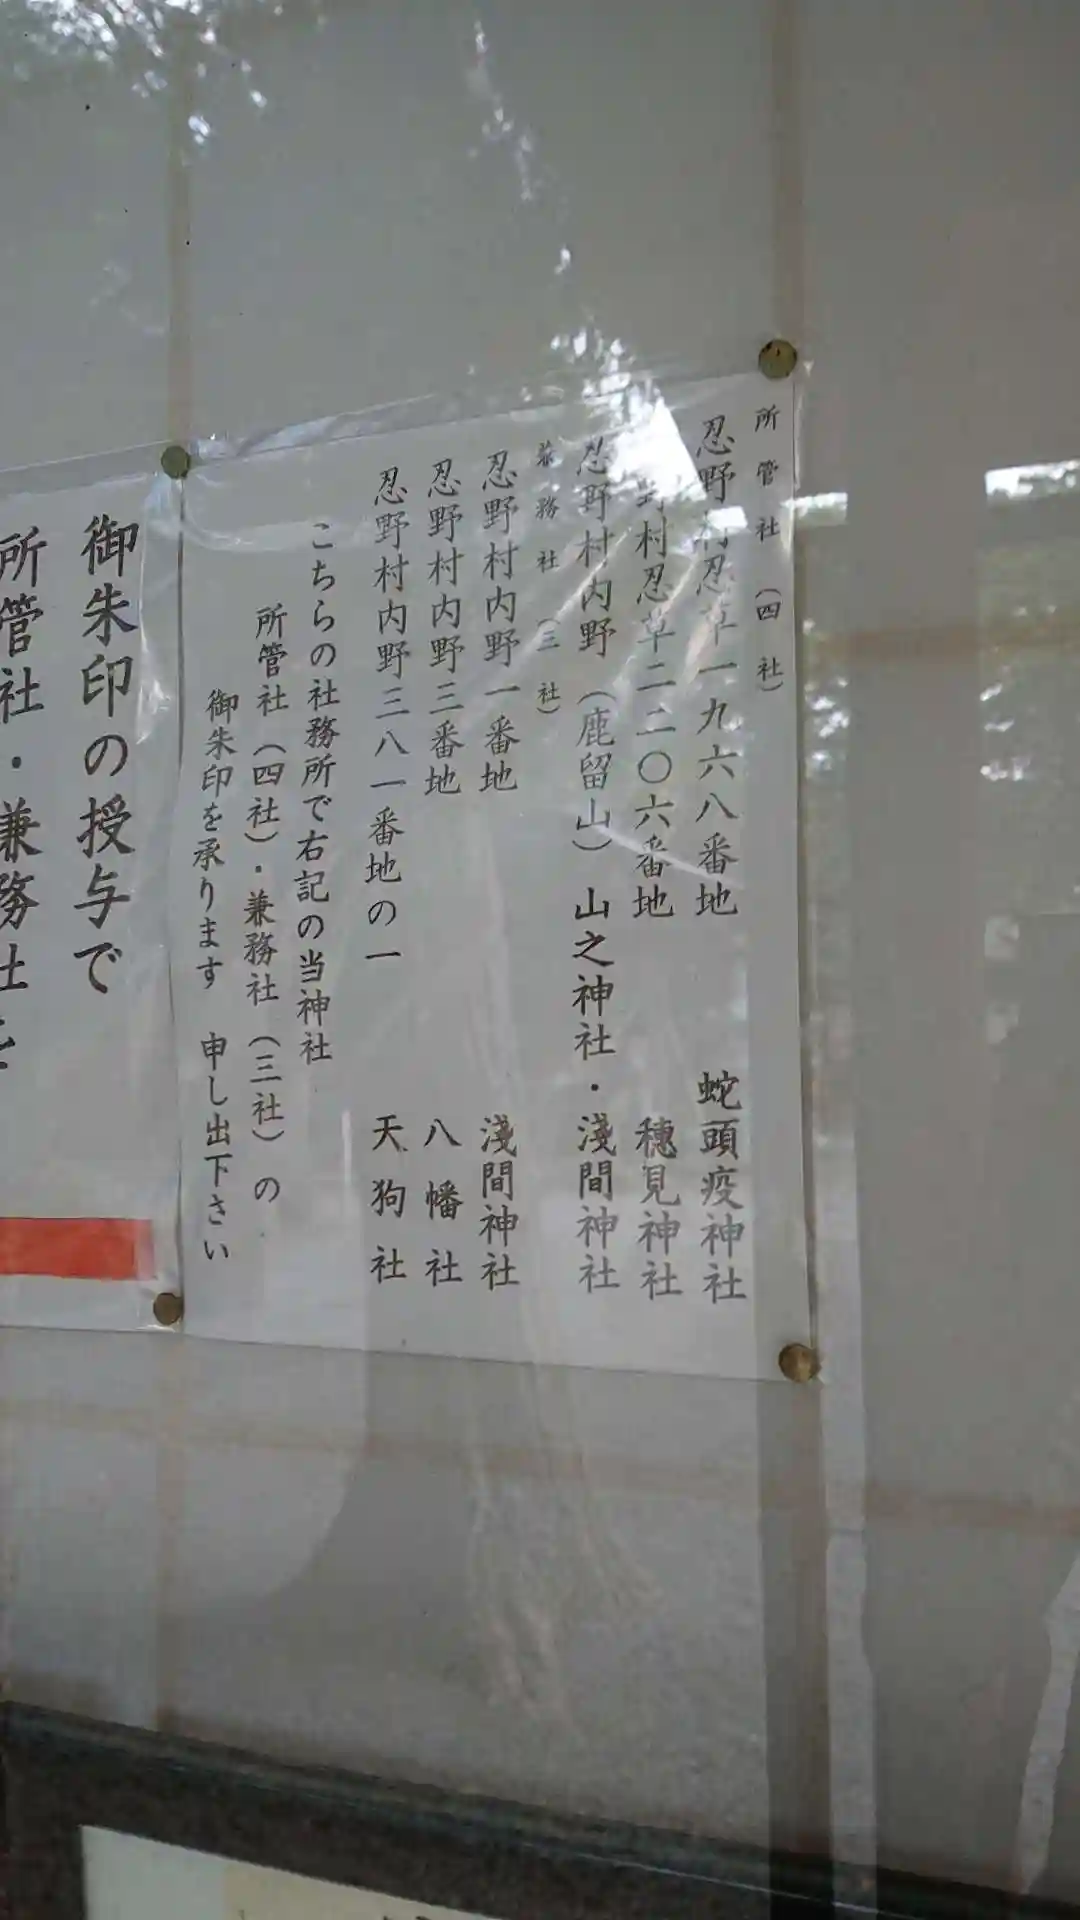 所管社（四社）
忍野村忍草一九六八番地 蛇頭疫神社
野村忍草二二〇六番地 穂見神社
忍野村内野（鹿留山）山之神社・淺間神社
兼務社（三社）
忍野村内野一番地 淺間神社
忍野村内野三番地 八幡社
忍野村内野三八一番地の一 天狗社
こちらの社務所で右記の当神社
所管社（四社）・兼務社（三社）の
御朱印を承ります 申し出下さい
御朱印の授与で
所管社・兼務社を